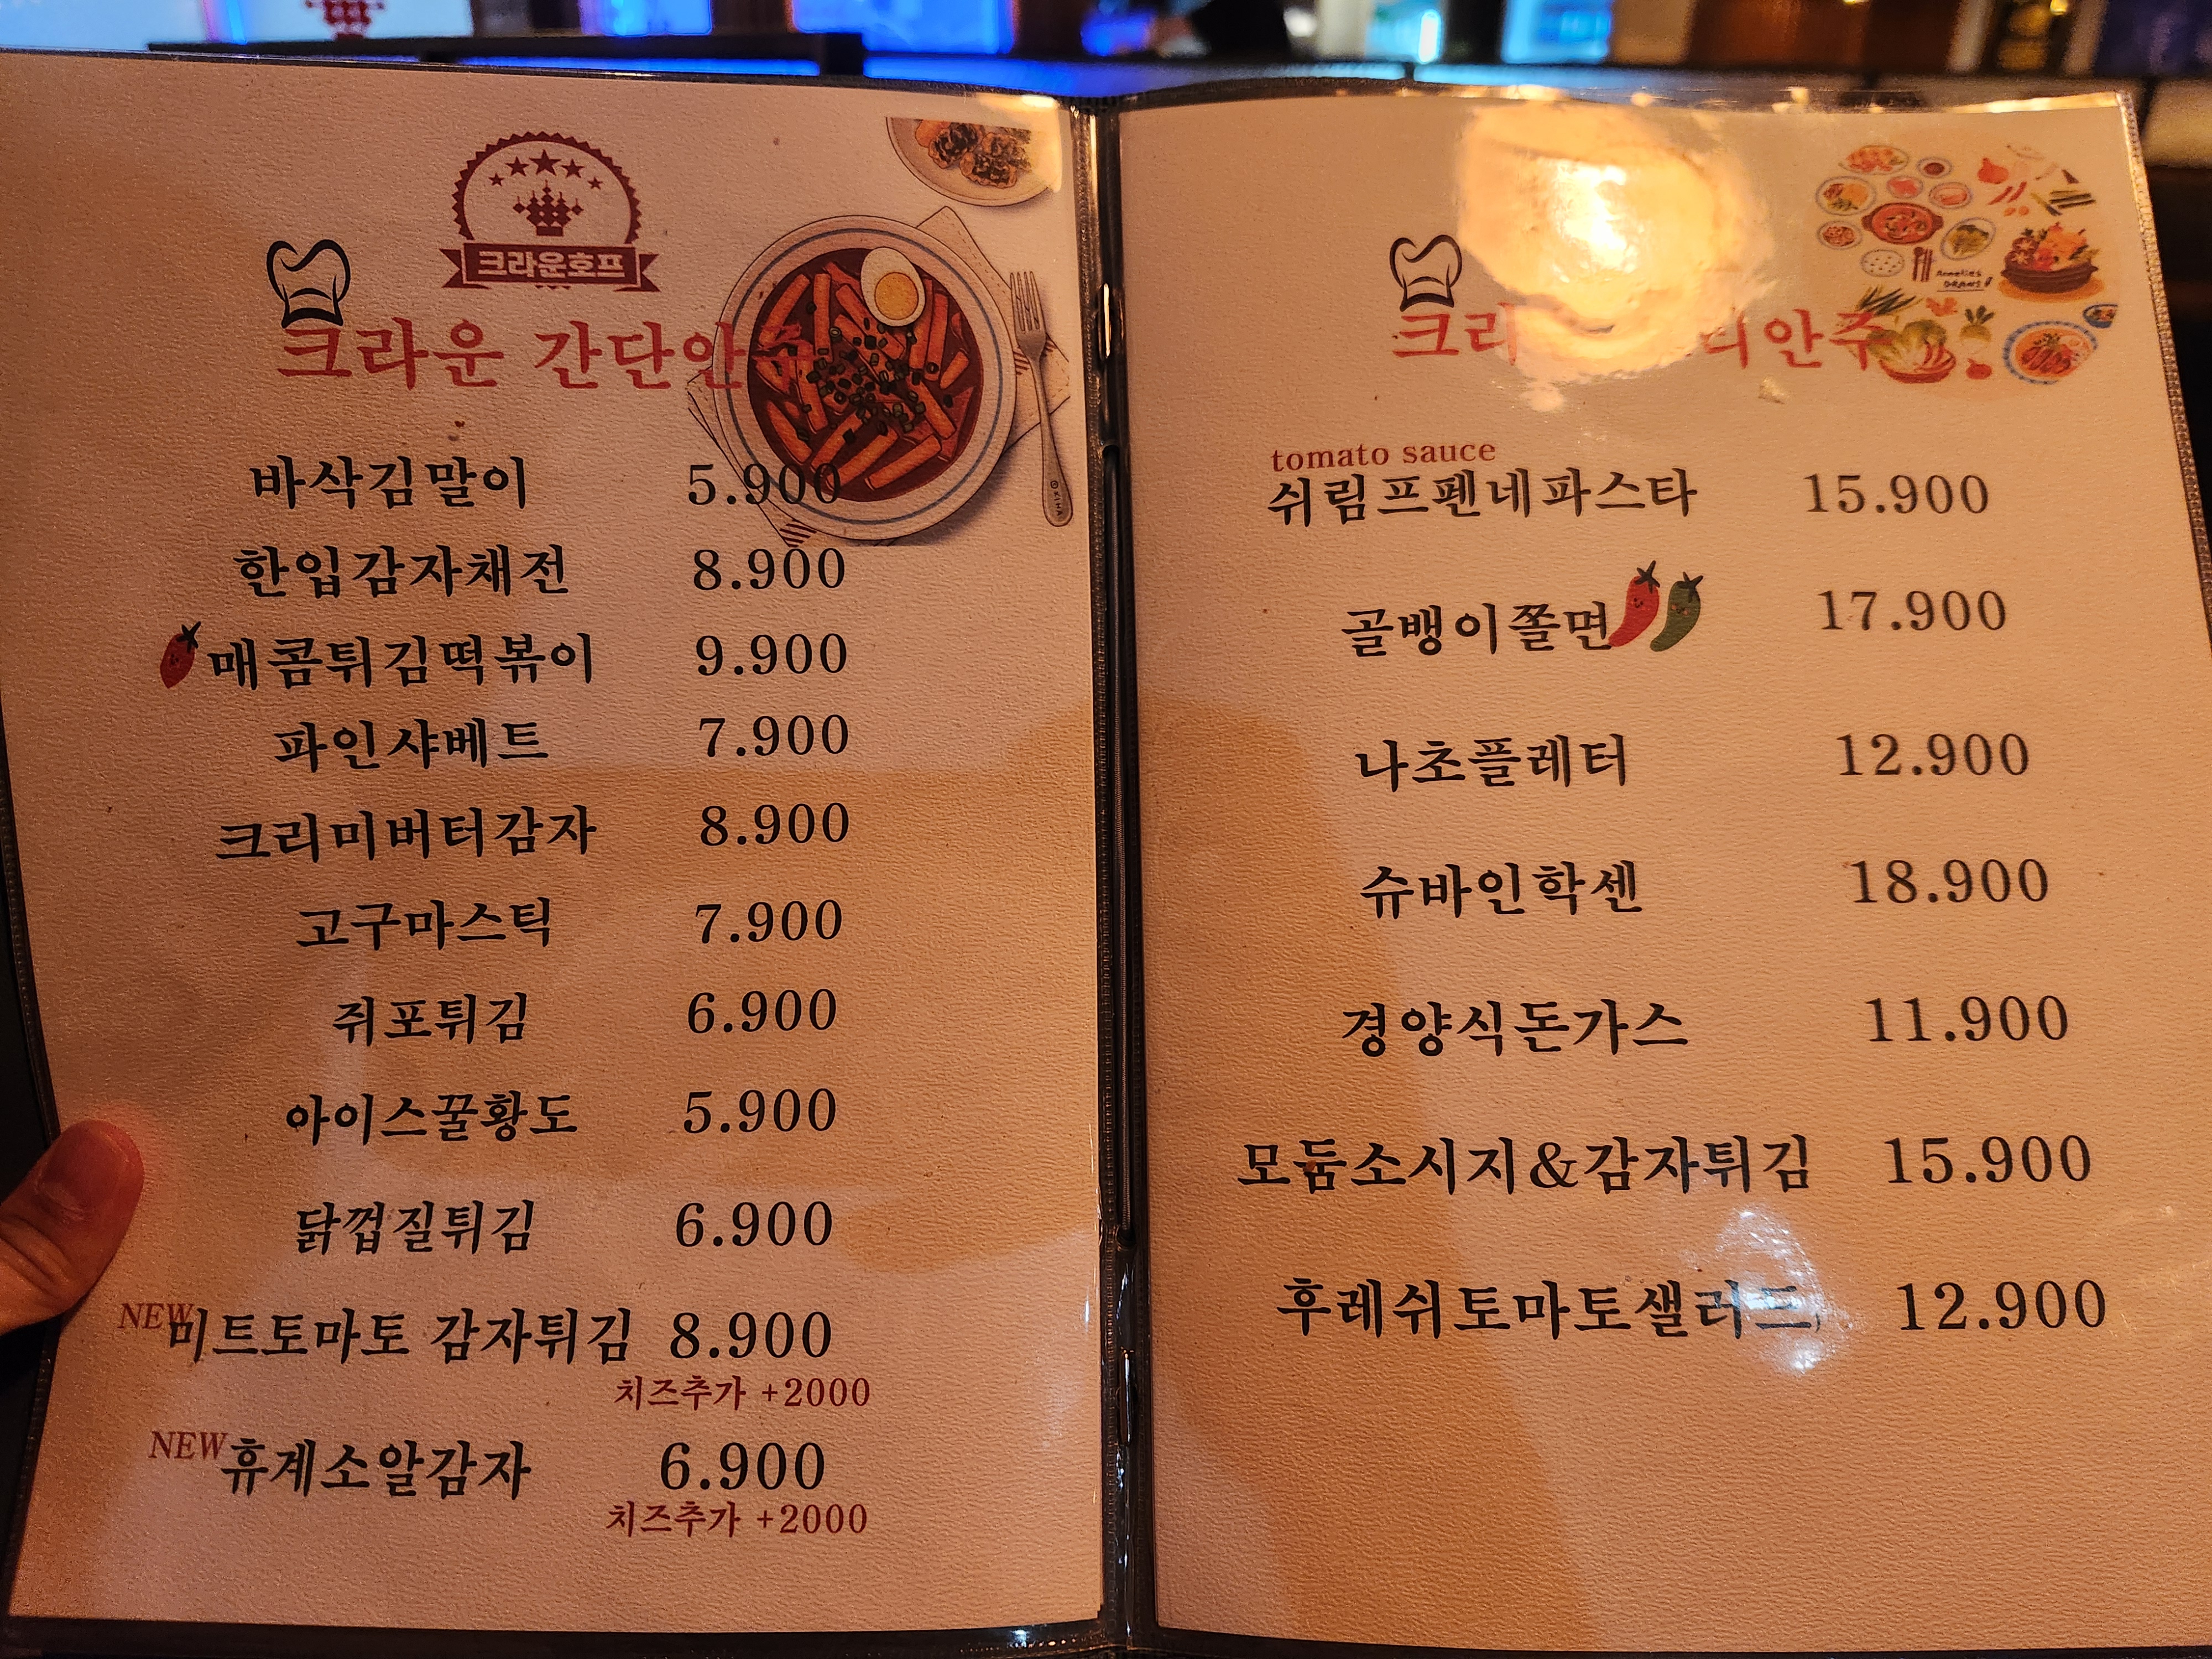 크라운호프
크라운 간단안주
바삭김말이 5.900
한입감자채전 8.900
매콤튀김떡볶이 9.900
파인샤베트 7.900
크리미버터감자 8.900
고구마스틱 7.900
쥐포튀김 6.900
아이스꿀황도 5.900
닭껍질튀김 6.900
NEW
미트토마토 감자튀김 8.900
치즈추가 +2000
NEW
휴계소알감자 6.900
치즈추가 +2000
Annelies
DRAWS
tomato sauce
쉬림프펜네파스타 15.900
골뱅이쫄면 17.900
나초플레터 12.900
슈바인학센 18.900
경양식돈가스 11.900
모둠소시지&감자튀김 15.900
후레쉬토마토샐러드 12.900